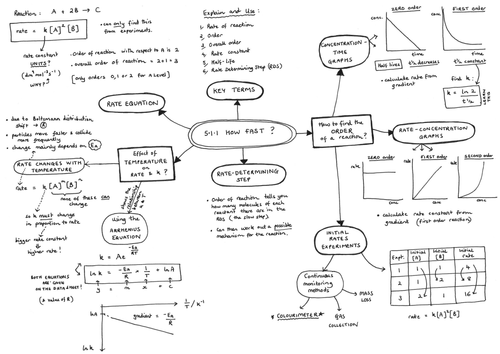 Reaction: A + 2B → C
rate = k[A]²[B]
can only find this
from experiments.
rate constant
UNITS?
(dm⁶mol⁻²s⁻¹)
WHY?
Order of reaction with respect to A is 2
overall order of reaction = 2+1 = 3
[only orders 0, 1 or 2 for A level]
RATE EQUATION
Explain and Use:
Rate of reaction
Order
Overall order
Rate constant
Half-life
Rate Determining Step (RDS)
KEY TERMS
5.1.1 HOW FAST?
CONCENTRATION-
TIME
GRAPHS
ZERO order
conc.
time
FIRST order
conc.
time
Half lives
t½ decreases
t½ constant
calculate rate from
gradient
find k:
k = ln 2
t½
How to find the
ORDER
of a reaction?
RATE-CONCENTRATION
GRAPHS
ZERO order
rate
conc.
First order
rate
conc.
SECOND order
rate
conc.
calculate rate constant from
gradient (first order reaction)
INITIAL
RATES EXPERIMENTS
Expt.
Initial
[A]
Initial
[B]
Initial
rate
1
1
1
4
2
1
2
8
3
2
1
16
rate = k[A]²[B]
Continuous
monitoring
methods
MASS
LOSS
GAS
COLLECTION
COLOURIMETER
RATE-DETERMINING
STEP
Order of reaction tells you
how many molecules of each
reactant there are in the
RDS (the slow step)
Can then work out a possible
mechanism for the reaction.
Effect of
TEMPERATURE
on
RATE & k?
due to Boltzmann distribution
shift →
particles move faster & collide
more frequently.
change mainly depends on Ea
RATE CHANGES WITH
TEMPERATURE
rate = k[A]ᵐ[B]ⁿ
none of these can
change
so k must change
in proportion to rate
bigger rate constant
= higher rate!
Using the
ARRHENIUS
EQUATION
k = Ae^(-Ea/RT)
BOTH EQUATIONS
ARE GIVEN
ON THE DATASHEET!
(& value of R)
ln k = -Ea/R × 1/T + ln A
y = m x + c
1/T / K⁻¹
ln A
gradient = -Ea/R
ln k